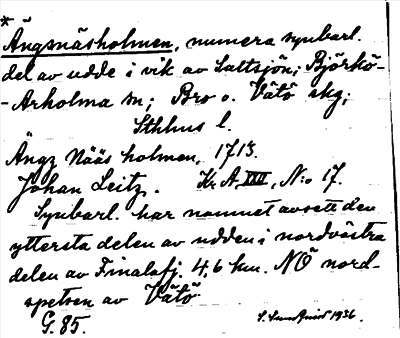 *
Ängsnäsholmen, numera synbarl.
del av udde i vik av Saltsjön; Björkö-
-Arholma sn; Bro o. Vätö skg;
Sthlms l.
Ängz Nääs holmen, 1713.
Johan Leitz. Kr A, XVII, N:o 17.
Synbarl. har namnet avsett den
yttersta delen av udden i nordvästra
delen av Finalafj. 4,6 km. NÖ nord-
spetsen av Vätö
G. 85. 1936.